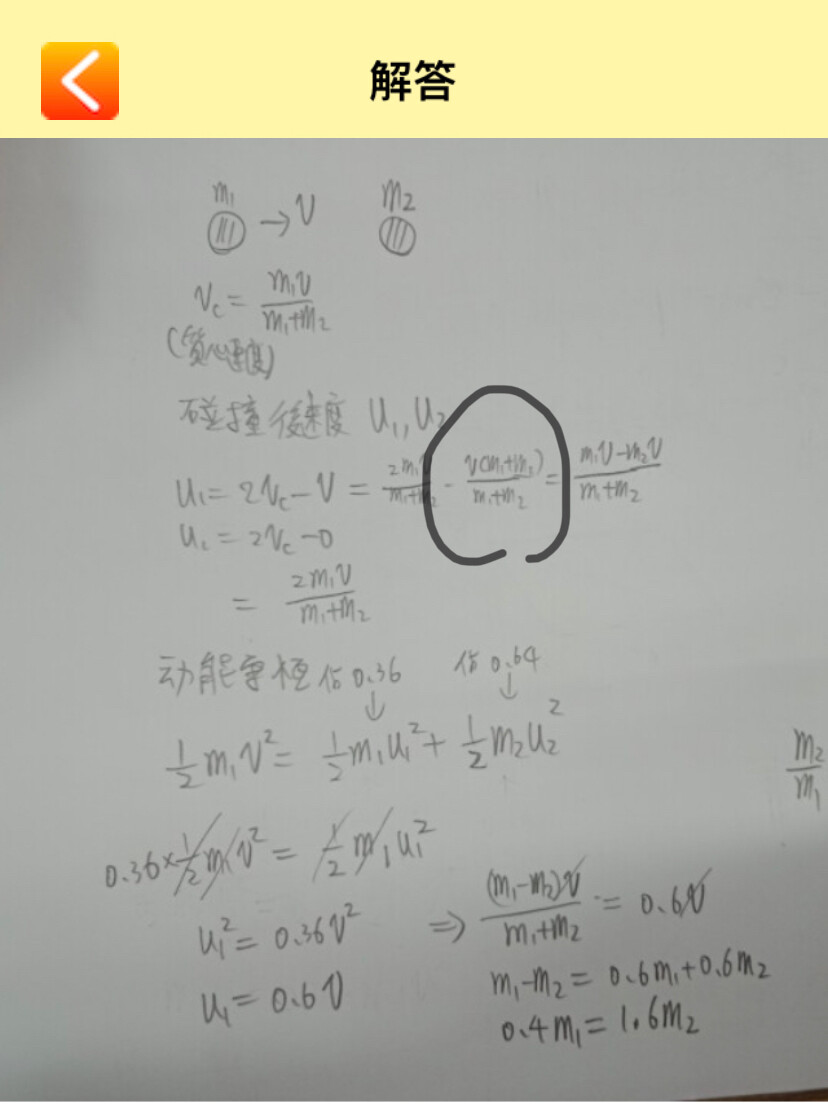 解答
m₁ → v m₂
v_c = m₁v/(m₁+m₂)
(質心速度)
碰撞後速度 u₁, u₂
u₁ = 2v_c - v = 2m₁v/(m₁+m₂) - v(m₁+m₂)/(m₁+m₂) = (m₁v-m₂v)/(m₁+m₂)
u₂ = 2v_c - 0
= 2m₁v/(m₁+m₂)
动能守恆 佔0.36 佔0.64
↓ ↓
1/2 m₁v² = 1/2 m₁u₁² + 1/2 m₂u₂²
m₂/m₁
0.36 × 1/2 m₁v² = 1/2 m₁u₁²
u₁² = 0.36v² ⇒ (m₁-m₂)v/(m₁+m₂) = 0.6v
u₁ = 0.6v m₁-m₂ = 0.6m₁+0.6m₂
0.4m₁ = 1.6m₂